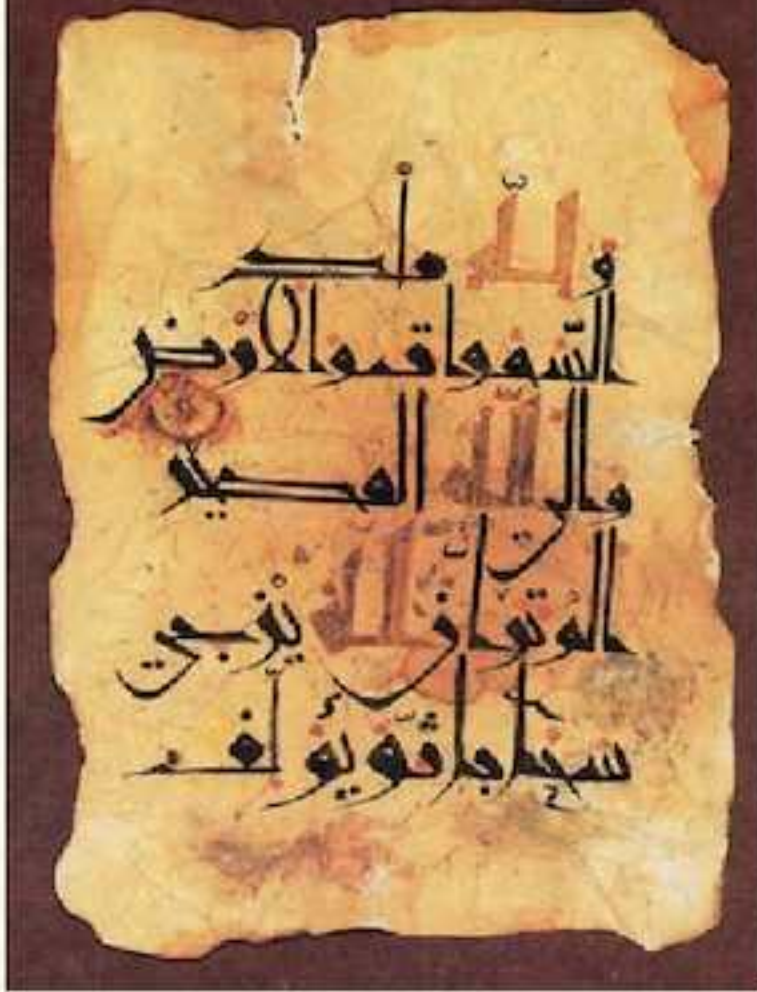 ولله ملك
السموات والارض
والى الله المصير
الم تر ان الله يزجي
سحابا ثم يؤلف